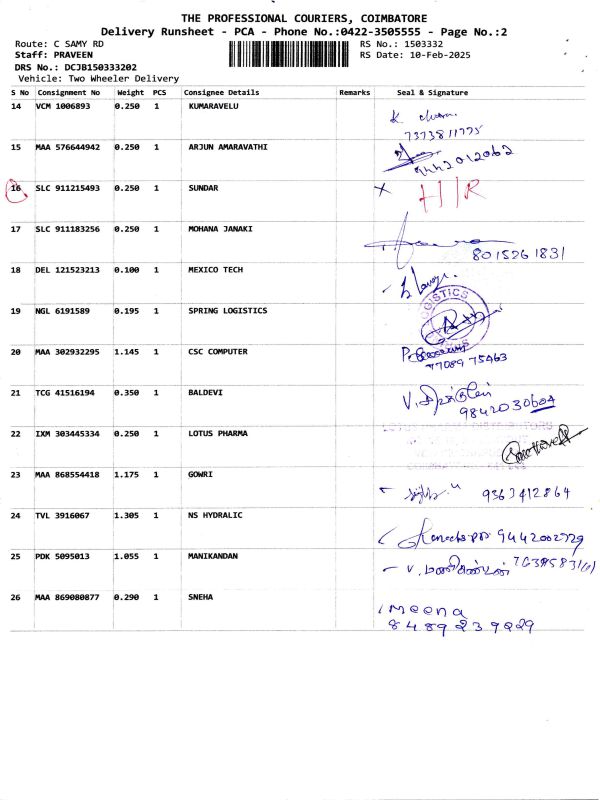 THE PROFESSIONAL COURIERS, COIMBATORE
Delivery Runsheet - PCA - Phone No.:0422-3505555 - Page No.:2
Route: C SAMY RD RS No.: 1503332
Staff: PRAVEEN RS Date: 10-Feb-2025
DRS No.: DCJB150333202
Vehicle: Two Wheeler Delivery
S No Consignment No Weight PCS Consignee Details Remarks Seal & Signature
14 VCM 1006893 0.250 1 KUMARAVELU
7373811775
15 MAA 576644942 0.250 1 ARJUN AMARAVATHI
9442012062
16 SLC 911215493 0.250 1 SUNDAR X H/R
17 SLC 911183256 0.250 1 MOHANA JANAKI
8015261831
18 DEL 121523213 0.100 1 MEXICO TECH
19 NGL 6191589 0.195 1 SPRING LOGISTICS
20 MAA 302932295 1.145 1 CSC COMPUTER
77089 75463
21 TCG 41516194 0.350 1 BALDEVI
9842030604
22 IXM 303445334 0.250 1 LOTUS PHARMA
23 MAA 868554418 1.175 1 GOWRI
9363412864
24 TVL 3916067 1.305 1 NS HYDRALIC
9442002729
25 PDK 5095013 1.055 1 MANIKANDAN
v. மணிகண்டன்
26 MAA 869080877 0.290 1 SNEHA
Meena
8489239229